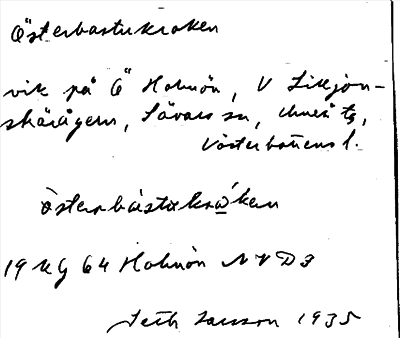 Österbastukroken
vik på Ö Holmön, V Lilljon-
skärägern, Sävars sn, Umeå ts,
Västerbottens l.
österbástukrὼken
19 K g 64 Holmön NV D 3
Seth Larsson 1935